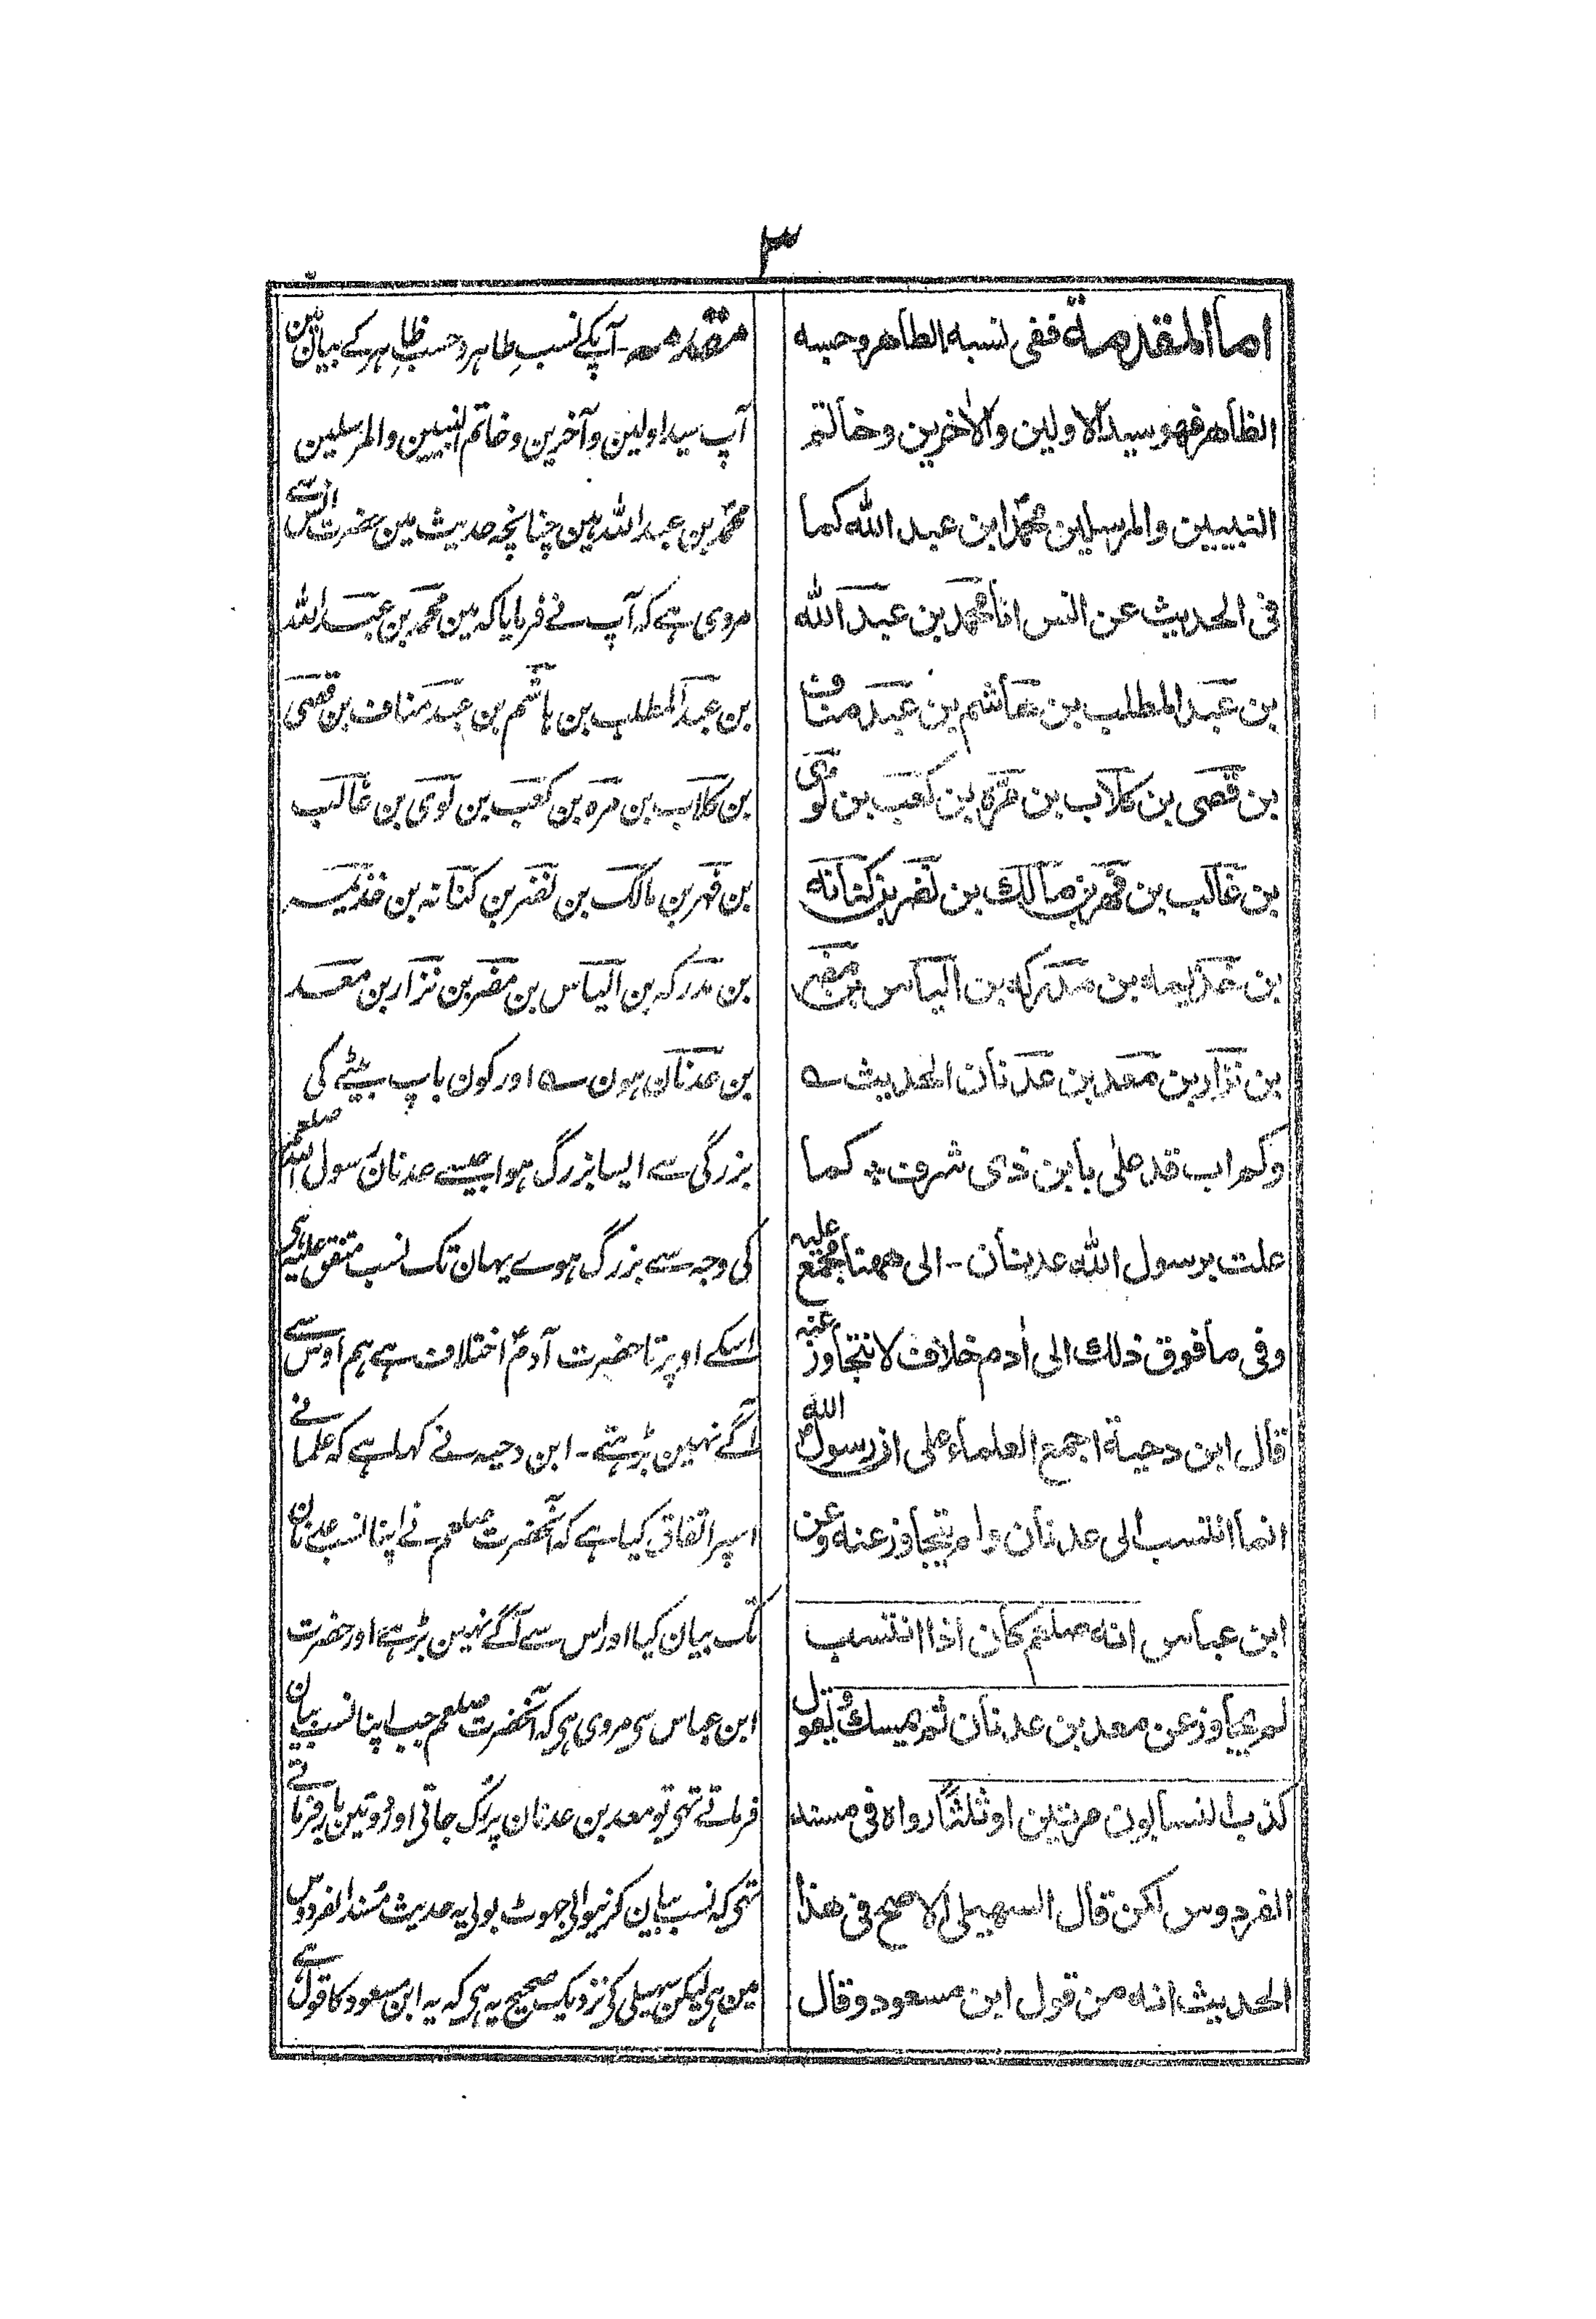 ٣
اما المقدمة ففی نسبه الطاهر وحسبه
الظاهر فهو سید الاولین والاٰخرین وخاتم
النبیین والمرسلین محمدؐ ابن عبد الله کما
فی الحدیث عن انس انا محمد بن عبد الله
بن عبد المطلب بن هاشم بن عبد مناف
بن قصی بن کلاب بن مرة بن کعب بن لوی
بن غالب بن فهر بن مالك بن نضر بن کنانه
بن خذیمه بن مدرکه بن الیاس بن مضر
بن نزار بن معد بن عدنان الحدیث ــه
وکم اب قد علی بابن ذی شرف ٭ کما
علت برسول الله عدنان - الی ههنا مجمع علیه
وفی ما فوق ذلك الی اٰدم خلاف لا نتجاوز عنه
قال ابن دحیة اجمع العلماء علی ان رسول الله
انما انتسب الی عدنان ولم یتجاوز عنه وعن
ابن عباس انه صلعم کان اذا انتسب
لم یجاوز عن معد بن عدنان ثم یمسك ویقول
کذب النسابون مرتین او ثلثا رواه فی مسند
الفردوس لکن قال السهیلی الاصح فی هذا
الحدیث انه من قول ابن مسعود وقال
مقدمہ - آپکے نسب طاہر وحسب ظاہر کے بیان مین
آپ سید اولین و آخرین و خاتم النبیین والمرسلین
محمدؐ بن عبد اللہ ہین چنانچہ حدیث مین حضرت انس سے
مروی ہے کہ آپ نے فرمایا کہ مین محمد بن عبد اللہ
بن عبد المطلب بن ہاشم بن عبد مناف بن قصی
بن کلاب بن مرہ بن کعب بن لوی بن غالب
بن فہر بن مالک بن نضر بن کنانہ بن خذیمہ
بن مدرکہ بن الیاس بن مضر بن نزار بن معد
بن عدنان ہون ــہ اور کون باپ بیٹے کی
بزرگی سے ایسا بزرگ ہوا جیسے عدنان رسول اللہ صلعم
کی وجہ سے بزرگ ہوے یہان تک نسب متفق علیہ ہی
اسکے اوپر تا حضرت آدمؑ اختلاف ہے ہم اوس سے
آگے نہین بڑہتے - ابن دحیہ نے کہا ہے کہ علما نے
اسپر اتفاق کیا ہے کہ آنحضرت صلعم نے اپنا نسب عدنان
تک بیان کیا اور اس سے آگے نہین بڑہے اور حضرت
ابن عباس سی مروی ہی کہ آنحضرت صلعم جب اپنا نسب بیان
فرماتے تہی تو معد بن عدنان پر رک جاتی اور دو تین بار فرماتے
تہی کہ نسب بیان کرنیوالی جہوٹ بولی یہ حدیث مسند الفردوس
مین ہی لیکن سہیلی کی نزدیک صحیح یہ ہی کہ یہ ابن مسعود کا قول ہے